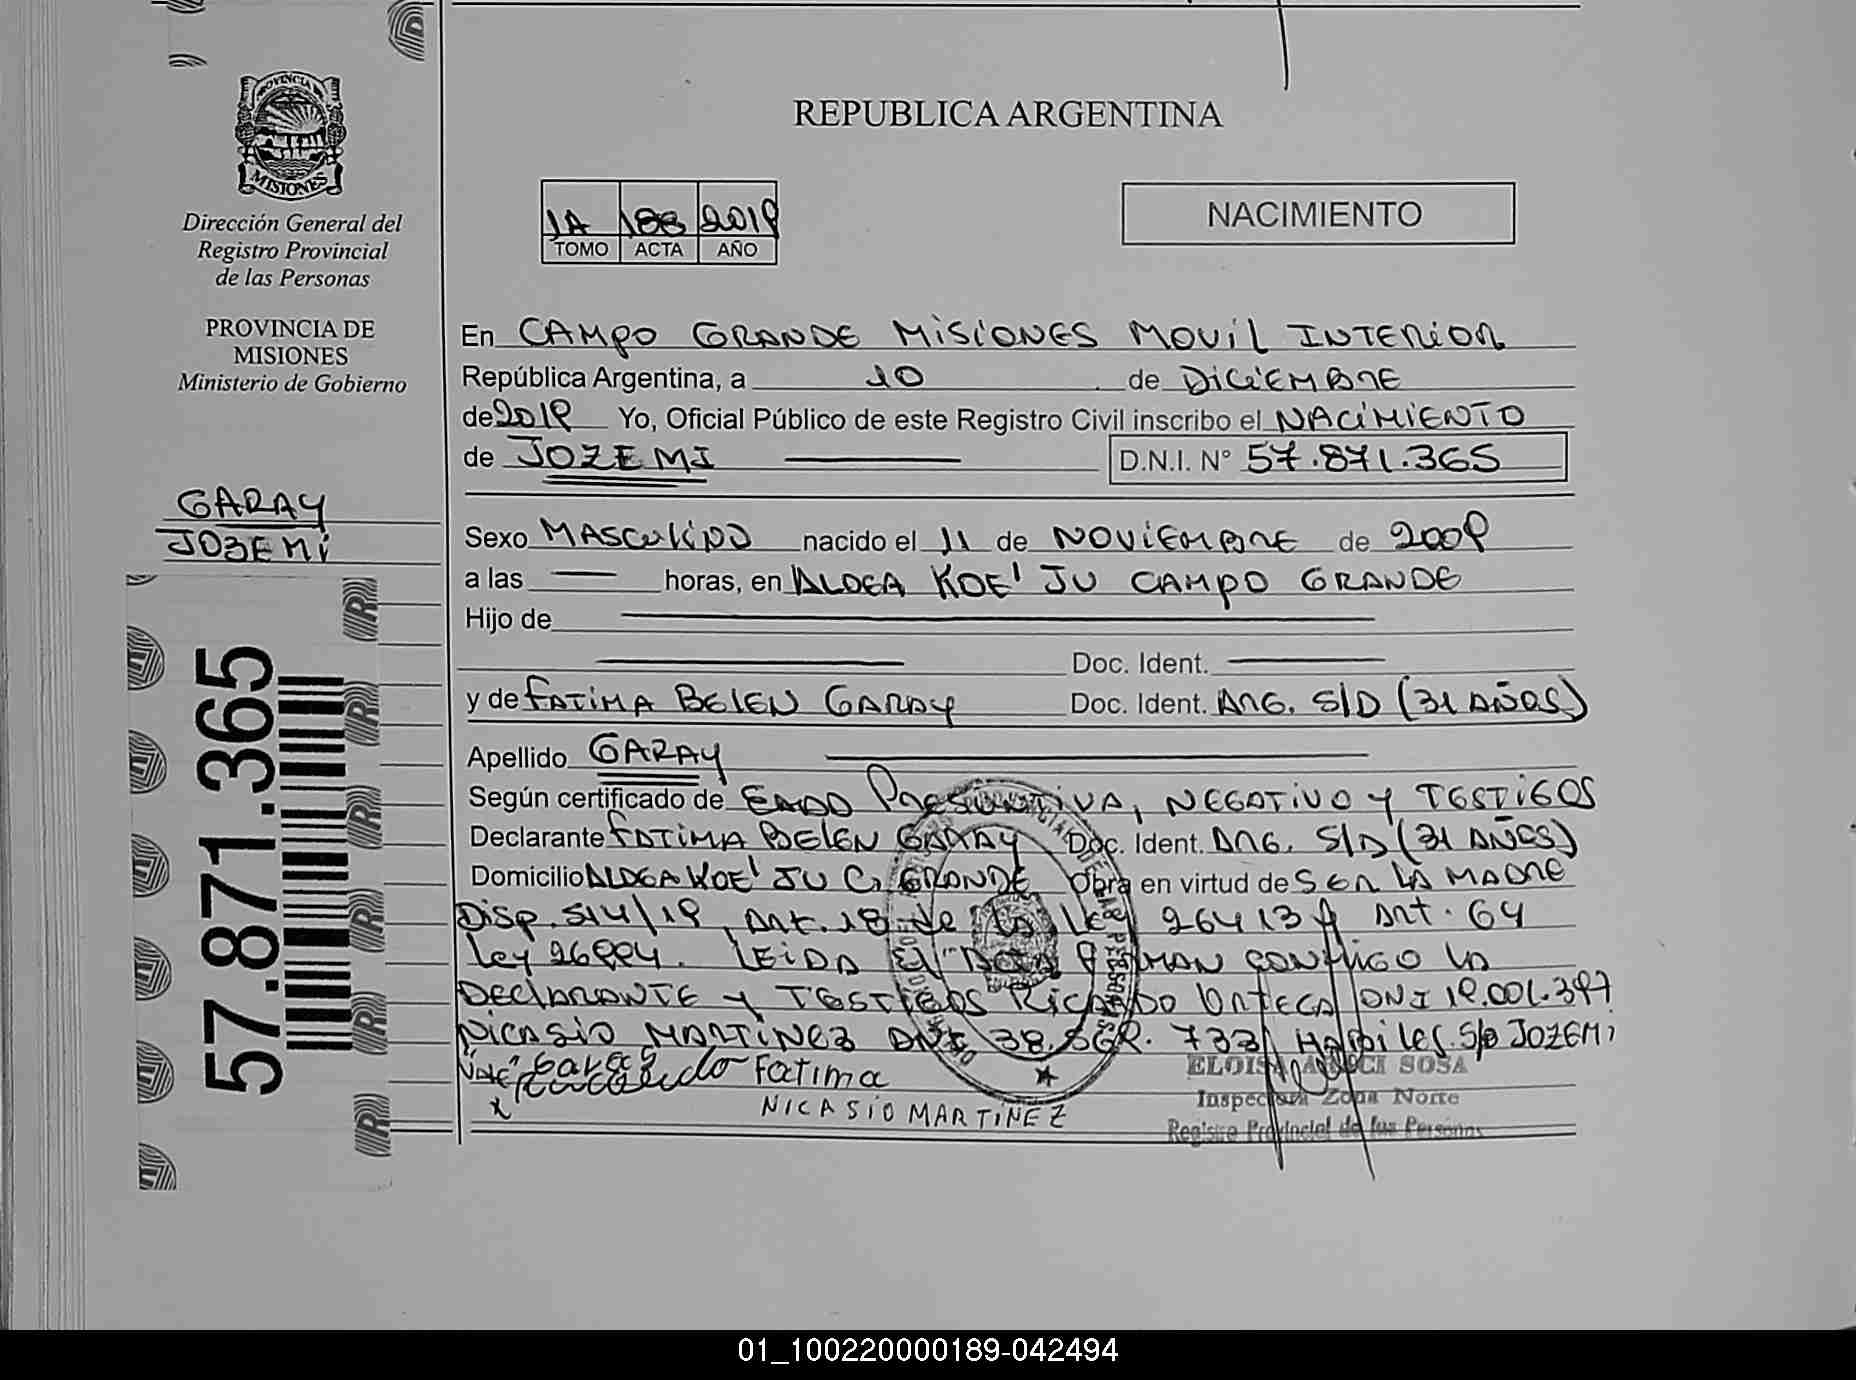 REPUBLICA ARGENTINA
PROVINCIA DE
MISIONES
Dirección General del
Registro Provincial
de las Personas
PROVINCIA DE
MISIONES
Ministerio de Gobierno
1A 188 2019
TOMO ACTA AÑO
NACIMIENTO
En CAMPO GRANDE MISIONES MOVIL INTERIOR
República Argentina, a 10 de DICIEMBRE
de 2019 Yo, Oficial Público de este Registro Civil inscribo el NACIMIENTO
de JOZEMI D.N.I. N° 57.871.365
GARAY
JOZEMI
57.871.365
Sexo MASCULINO nacido el 11 de NOVIEMBRE de 2009
a las horas, en ALDEA KOE' JU CAMPO GRANDE
Hijo de
Doc. Ident.
y de FATIMA BELEN GARAY Doc. Ident. ARG. S/D (31 AÑOS)
Apellido GARAY
Según certificado de EDAD PRESUNTIVA, NEGATIVO Y TESTIGOS
Declarante FATIMA BELEN GARAY Doc. Ident. ARG. S/D (31 AÑOS)
Domicilio ALDEA KOE' JU C. GRANDE Obra en virtud de SER LA MADRE
Disp. 514/19, Art. 18 de la 26413 Art. 64
Ley 26994. LEIDA EL ACTA FIRMAN CONMIGO LA
DECLARANTE Y TESTIGOS RICARDO ORTEGA DNI 19.001.397
NICASIO MARTINEZ DNI 733 HABILES. S/B JOZEMI
VALE Garay Fatima
x NICASIO MARTINEZ
ELOISA SOSA
Inspectora Zona Norte
Registro Provincial de las Personas
01_100220000189-042494